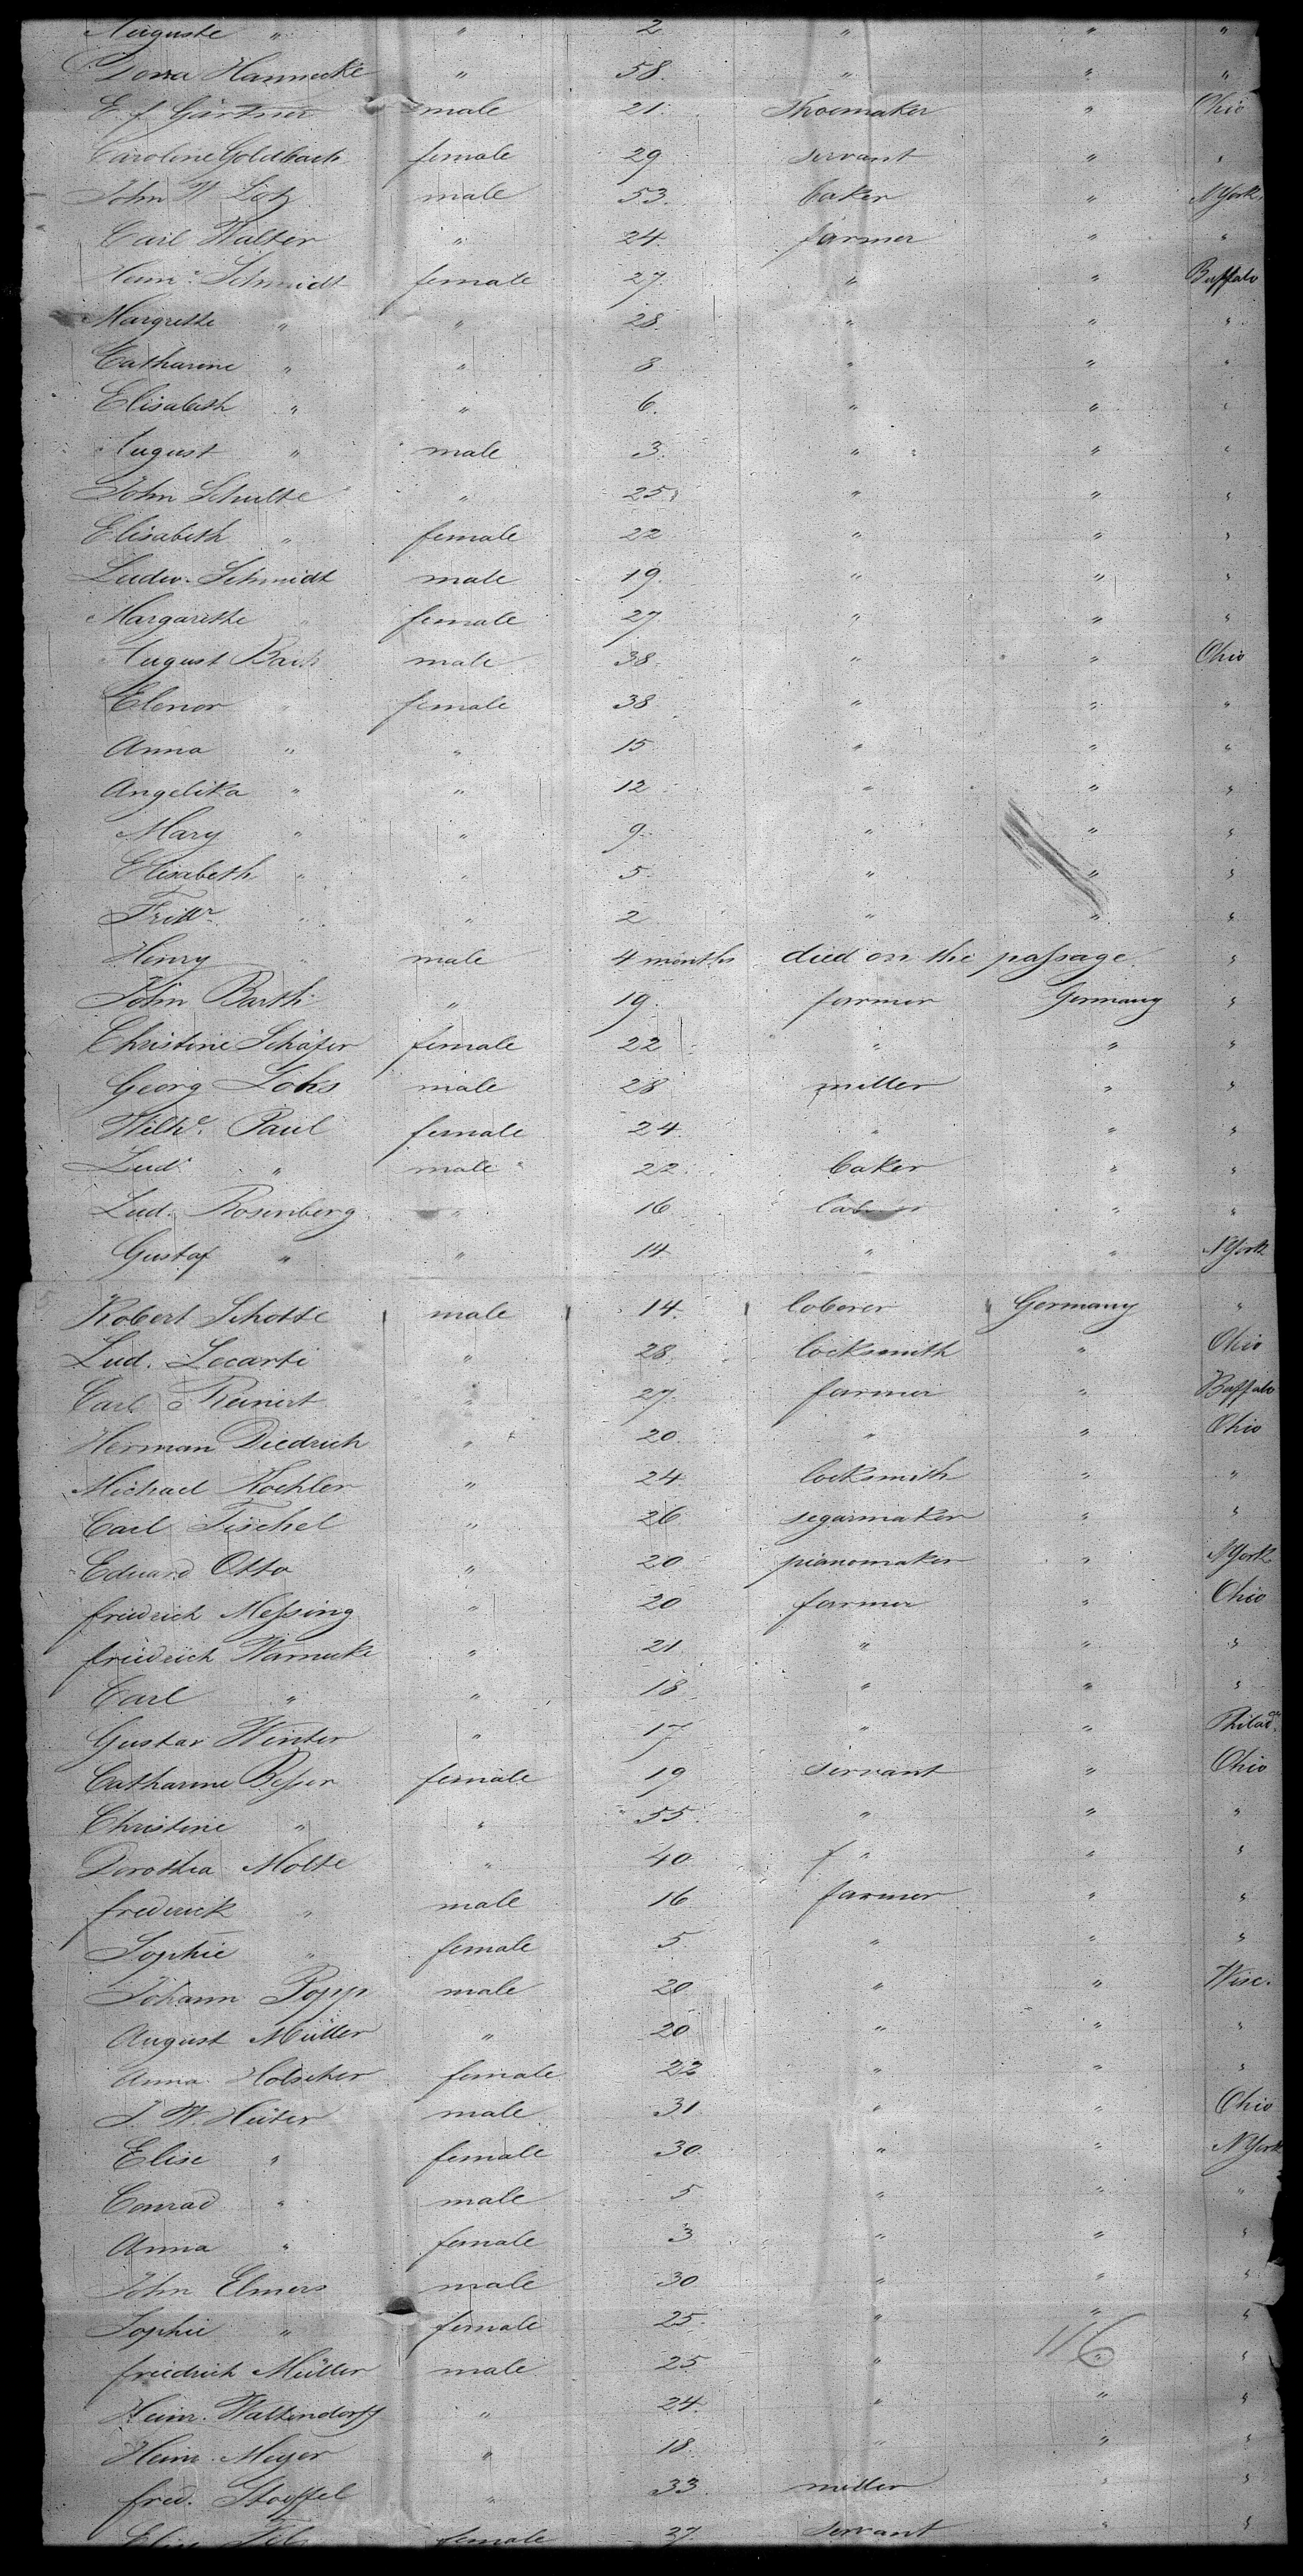 Auguste " " 2 " " "
Dora Hannecke " 58. " " "
E. f Gärtner male 21. Shoemaker " Ohio
Caroline Goldbach female 29 servant " "
John W Lotz male 53. baker " N York
Carl Walter " 24 farmer " "
Heinr. Schmidt female 27. " " Buffalo
Margrethe " " 28. " " "
Catharine " " 8 " " "
Elisabeth " " 6. " " "
August " male 3. " " "
John Schulte " 25. " " "
Elisabeth " female 22 " " "
Ludw. Schmidt male 19. " " "
Margarethe " female 27 " " "
August Bach male 38. " " Ohio
Elenor " female 38 " " "
Anna " " 15 " " "
Angelika " " 12 " " "
Mary " " 9. " " "
Elisabeth " " 5. " " "
" " 2 " " "
Henry " male 4 months died on the passage. "
John Barth " 19. farmer Germany "
Christine Schäfer female 22 " " "
Georg Lohs male 28 miller " "
Wilhe. Paul female 24. " " "
Lud. " male 22. baker " "
Lud. Rosenberg " 16 " "
Gustaf " " 14 " " N York
Robert Schotte male 14. loberer Germany "
Lud. Lecarti " 28 locksmith " Ohio
Carl Reinert " 27. farmer " Buffalo
Herman Diedrich " 20. " " Ohio
Michael Koehler " 24 locksmith " "
Carl Fischel " 26 segarmaker " "
Eduard Otto " 20 pianomaker " N York
friedrich Messing " 20 farmer " Ohio
friedrich Warnecke " 21 " " "
Carl " " 18 " " "
Gustav Winter " 17 " " Philad.
Catharine Besser female 19 servant " Ohio
Christine " " 55. " " "
Dorothea Molte " 40 " " "
frederick " male 16 farmer " "
Sophie " female 5. " " "
Johann Popp male 20 " " Wisc.
August Müller " 20 " " "
Anna Holscher female 22 " " "
J. W. Hüter male 31 " " Ohio
Elise " female 30 " " N York
Conrad " male 5 " " "
Anna " female 3 " " "
John Elmers male 30 " " "
Sophie " female 25. " " "
116
friedrich Müller male 25 " " "
Heinr. Waltendorff " 24. " " "
Heinr. Meyer " 18. " " "
fred. Stoffel " 33. miller " "
Elise female 27. servant " "